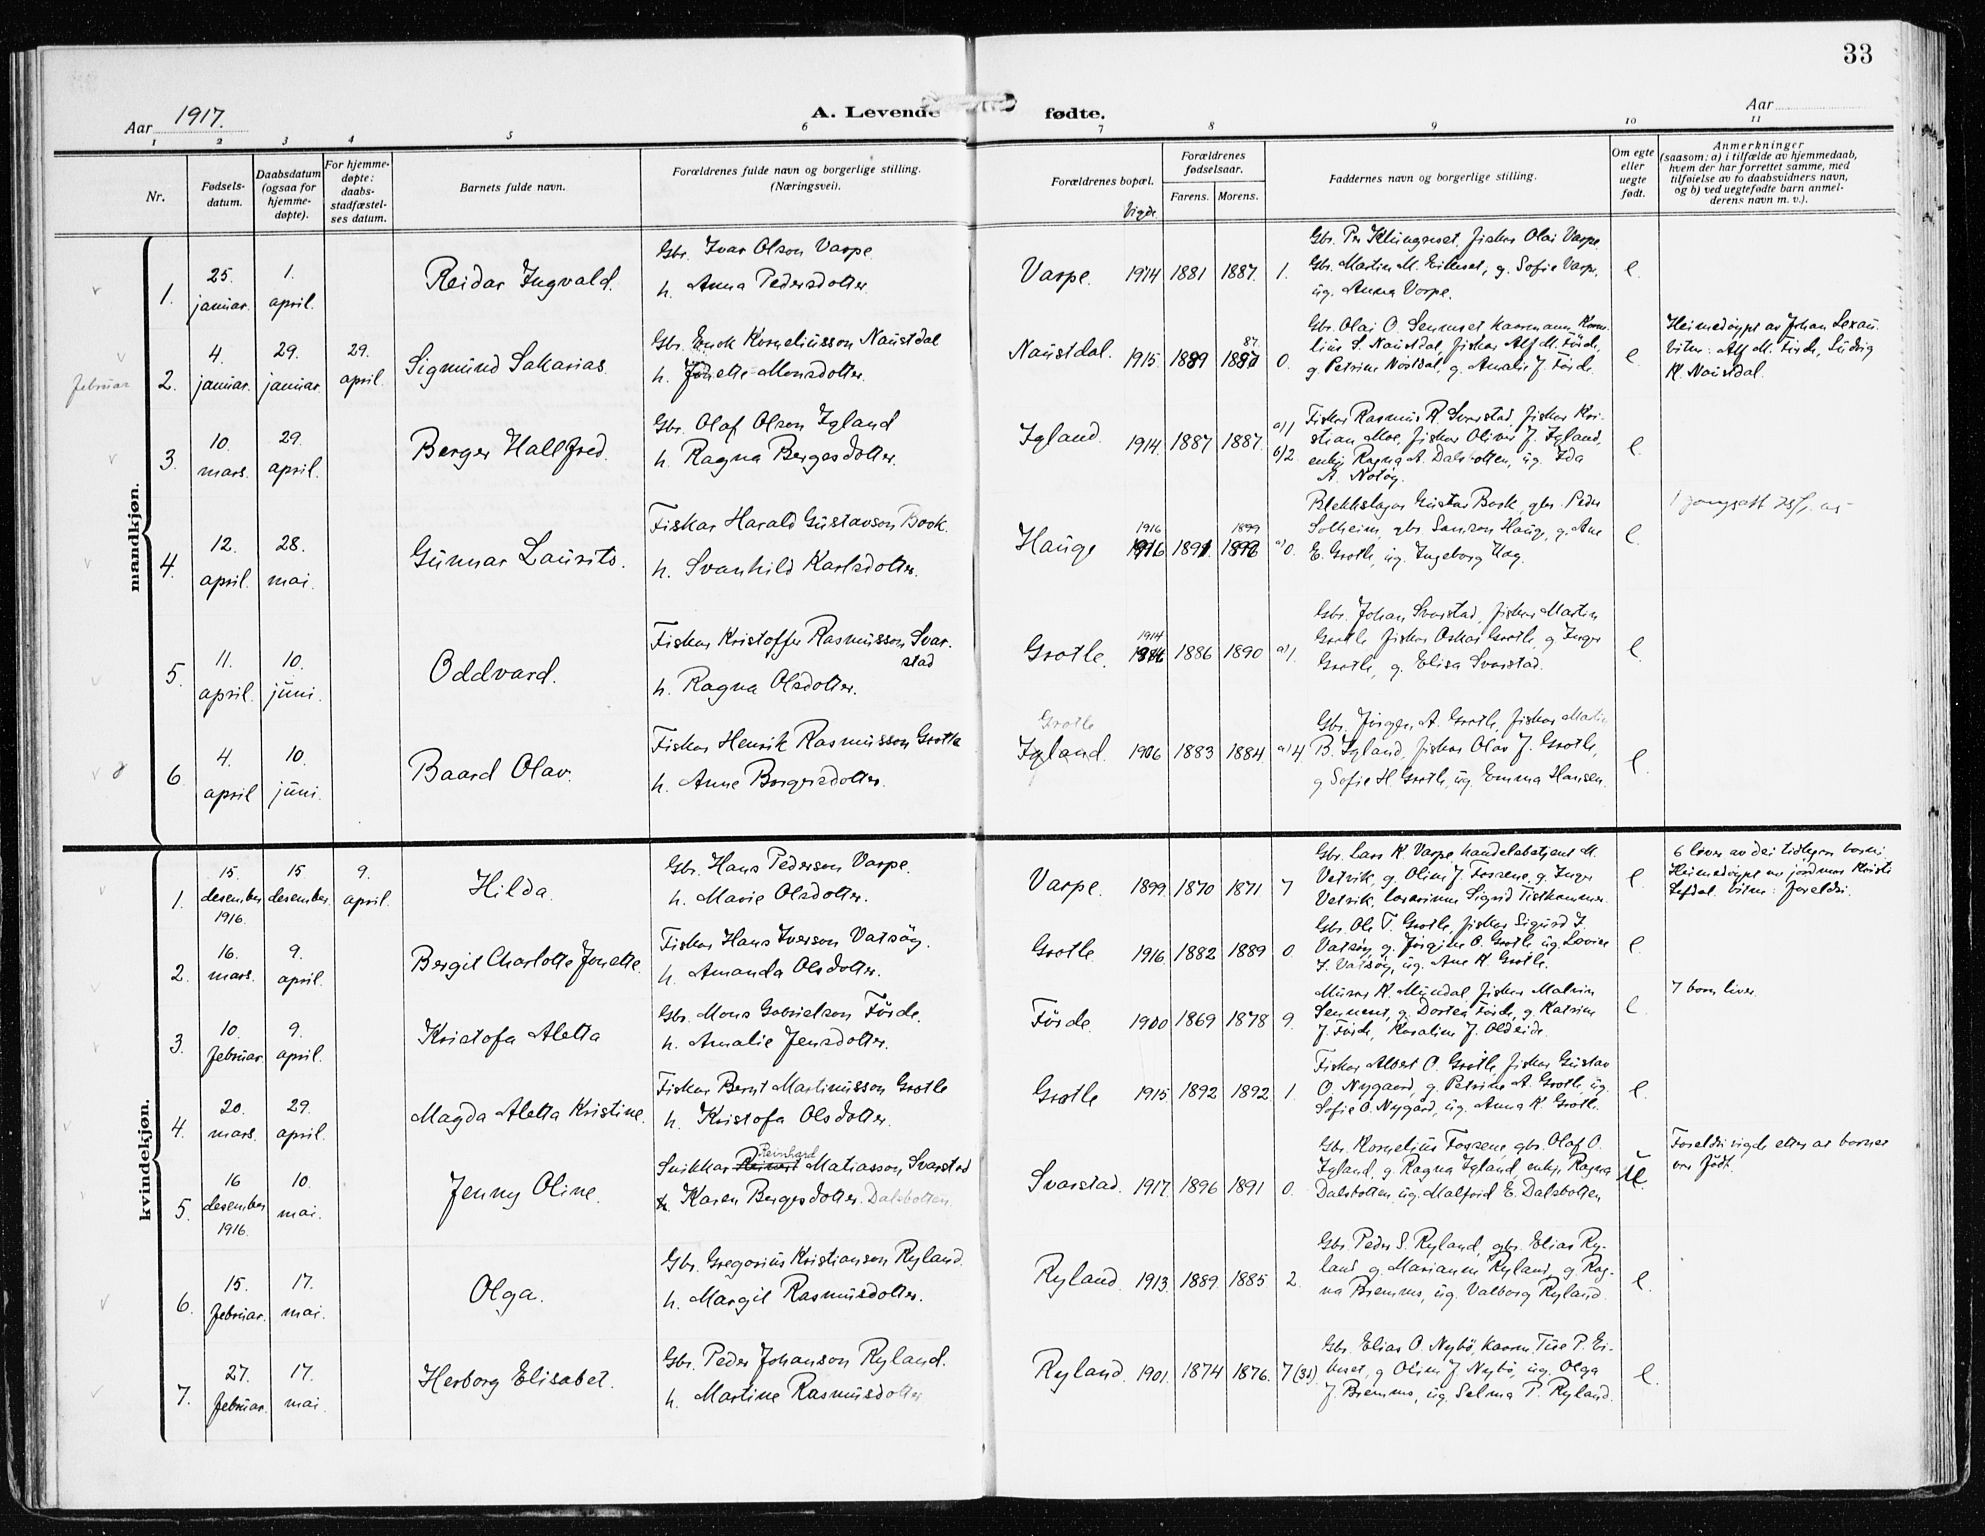 33
Aar 1917.
A. Levende fødte.
Aar
1 2 3 4 5 6 7 8 9 10 11
Nr.
Fødsels-
datum.
Daabsdatum
(ogsaa for
hjemme-
døpte).
For hjemme-
døpte:
daabs-
stadfæstel-
ses datum.
Barnets fulde navn.
Forældrenes fulde navn og borgerlige stilling.
(Næringsvei).
Forældrenes bopæl.
Vigde
Forældrenes
fødselsaar.
Farens. Morens.
Faddernes navn og borgerlige stilling.
Om egte
eller
uegte
født.
Anmerkninger
(saasom: a) i tilfælde av hjemmedaab,
hvem der har forrettet samme, med
tilføielse av to daabsvidners navn,
og b) ved uegtefødte barn anmel-
derens navn m. v.).
mandkjøn.
1. 25. januar. 1. april. Reidar Ingvald.
Gbr. Ivar Olson Varpe
h. Anna Pedersdotter.
Varpe. 1914 1881 1887. 1.
Gbr. Per Klungreset, fiskar Olai Varpe
Gbr. Martin M. Eikeset, g. Sofie Varpe,
ug. Anna Varpe.
e.
februar
2. 4. januar. 29. januar. 29. april. Sigmund Sakarias.
Gbr. Enok Korneliusson Naustdal
h. Jonette Monsdotter.
Naustdal. 1915. 1889 87. 0.
Gbr. Olai O. Senneset kaarmann Korne-
lius S. Naustdal, fiskar Alf M. Förde,
g. Petrine Nostdal, g. Amalie J. Förde.
e.
Heimedöypt av Johan Lexau.
Vitne: Alf M. Förde, Ludvig
K. Naustdal.
3. 10. mars. 29. april. Berger Hallfred.
Gbr. Olaf Olson Igland
h. Ragna Bergesdotter.
Igland. 1914. 1887 1887. a)1 b)2.
Fiskar Rasmus R. Svarstad, fiskar Kri-
stian Moe, fiskar Oliver J. Igland,
enkje Ragna A. Dalsbotten, ug. Ida
A. Notöy.
e.
4. 12. april. 28. mai. Gunnar Laurits.
Fiskar Harald Gustavson Book.
h. Svanhild Karlsdotter.
Hauge 1916 1891. 1899 a)0.
Blekkslagar Gustav Book, gbr. Peder
Solheim, gbr. Samson Haug, g. Ane
E. Grotle, ug. Ingeborg Haug.
e.
5. 11. april. 10. juni. Oddvard.
Fiskar Kristoffer Rasmusson Svar-
stad
h. Ragna Olsdotter.
Grotle. 1914 1886 1890 a)1.
Gbr. Johan Svarstad, fiskar Martin
Grotle fiskar Oskar Grotle, g Inger
Grotle, g. Elisa Svarstad.
e.
6. 4. april 10. juni. Baard Olav.
Fiskar Henrik Rasmusson Grotle
h. Anne Borgersdotter.
Grotle
Igland. 1906 1883 1884 a)4.
Gbr. Jörgen A. Grotle, fiskar Martin
B. Igland, fiskar Olav J. Grotle,
g Sofie H. Grotle, ug. Emma Hansen.
e.
kvindekjøn.
1. 15. desember 1916. 15 desember. 9. april. Hilda.
Gbr. Hans Pederson Varpe.
h. Marie Olsdotter.
Varpe. 1899. 1870 1871 7
Gbr. Lars K. Varpe, handelsbetjent M.
Vetvik, g. Oline J. Fossene, g. Inger
Vetvik, lærarinne Sigrid Tistkammer.
e.
6 lever av dei tidlegare borni.
Heimedöypt av jordmor Kristi
Lefdal. Vitne: foreldri.
2. 16. mars. 9. april. Bergit Charlotte Jonette.
Fiskar Hans Iverson Vatsöy.
h. Amanda Olsdotter.
Grotle 1916. 1882 1889 0.
Gbr. Ole T. Grotle, fiskar Sigurd I.
Vatsöy, g. Jörgine O. Grotle, ug. Lovise
I. Vatsöy, ug. Ane K. Grotle.
e.
3. 10. februar. 9. april. Kristofa Aletta
Gbr. Mons Gabrielson Förde.
h. Amalie Jensdotter.
Förde. 1900 1869 1878 9.
Murar K. Mundal, fiskar Mathias
Senneset, g. Dortea Förde, g. Katrine
J. Förde, Rosaline J. Oldeide.
e.
7 born liver.
4. 20. mars. 29. april. Magda Aletta Kristine.
Fiskar Bernt Martinusson Grotle
h. Kristofa Olsdotter.
Grotle 1915 1892 1892. 1.
Fiskar Albert O. Grotle, fiskar Gustav
O. Nygaard, g. Petrine A. Grotle, ug.
Sofie O. Nygård, ug. Anna K. Grotle.
e.
5. 16 desember 1916. 10. mai. Jenny Oline.
Reinhard
Snikkar Matiasson Svarstad
h. Karen Bergesdotter. Dalsbotten
Svarstad. 1917. 1896 1891 0.
Gbr. Kornelius Fossene, gbr. Olaf O.
Igland, g. Ragna Igland, enkje Ragna
Dalsbotten, ug. Malfrid E. Dalsbotten
Foreldri vigde etter at barnet
var födt.
6. 15. februar. 17. mai. Olga.
Gbr. Gregorius Kristianson Ryland.
h. Margit Rasmusdotter.
Ryland. 1913. 1889 1885 2.
Gbr. Peder S. Ryland, gbr. Elias Ry-
land g. Marianne Ryland, g. Rag-
na Bremnes, ug. Valborg Ryland.
e.
7. 27. februar. 17. mai. Herborg Elisabet.
Gbr. Peder Johanson Ryland.
h. Martine Rasmusdotter
Ryland. 1901. 1874 1876. 7
Gbr. Elias O. Nybö, kaarm. Ture P. Ei-
keset, g Oline J. Nybö, ug. Olga
J. Bremnes, ug. Selma P. Ryland.
e.